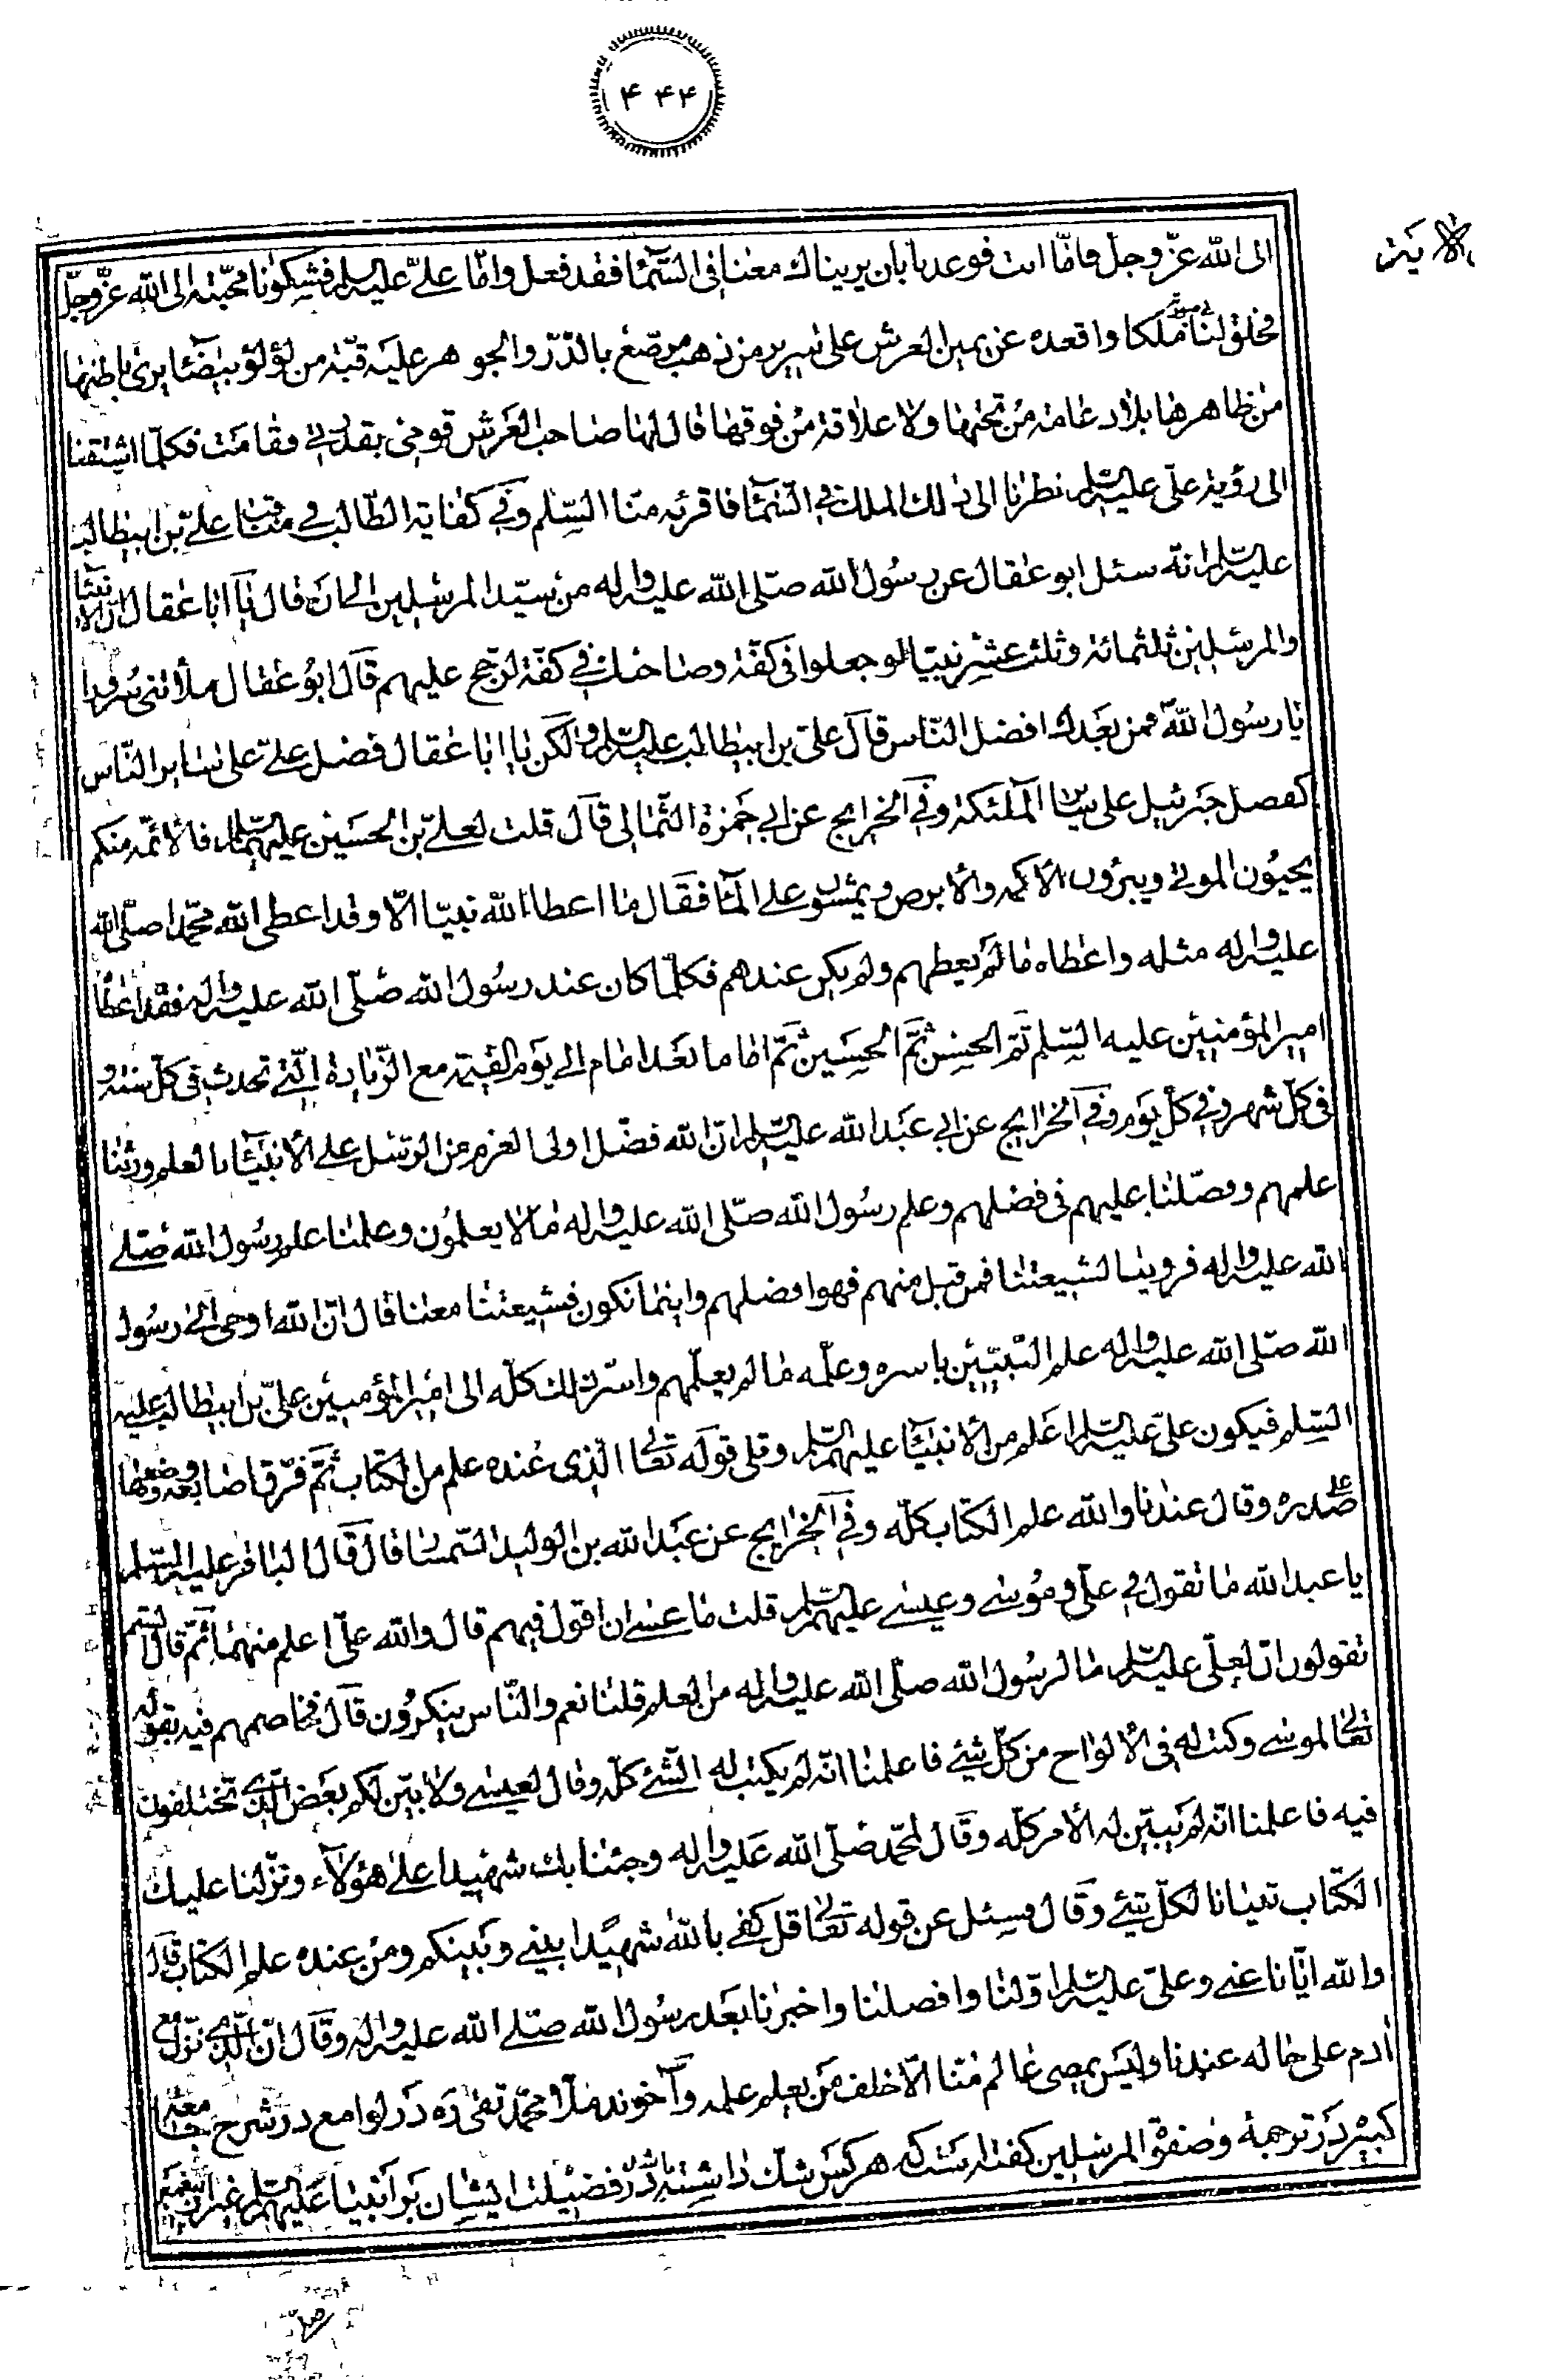 ۴۴۴
الى الله عزّ وجلّ فامّا انت فوعدنا بان يريناك معنا فى السّمآء فقد فعل وامّا علىّ عليه السلم فشكونا محبّته الى الله عزّ وجلّ
فخلق لنا فى صورته ملكا واقعده عن يمين العرش على سرير من ذهب مرصّع بالدّرّ والجوهر عليه قبّة من لؤلؤ بيضآء يرى باطنها
من ظاهرها بلا دعامة من تحتها ولا علاقة من فوقها قال لها صاحب العرش قومى بقدرتى فقامت فكلّما اشتقنا
الى رؤية علىّ عليه السلم نظرنا الى ذلك الملك فى السّمآء فاقرئه منّا السّلم وفى كفاية الطّالب فى مناقب علىّ بن ابيطالب
عليه السلم انّه سئل ابو عقال عن رسول الله صلّى الله عليه واله من سيّد المرسلين الى ان قال يا ابا عقال انّ الانبيآء
والمرسلين ثلثمائة وثلث عشر نبيّا لو جعلوا فى كفّة وصاحبك فى كفّة لرجح عليهم قال ابو عقال ملأتنى سرورا
يا رسول الله فمن بعدك افضل النّاس قال علىّ بن ابيطالب عليه السلم ولكن يا ابا عقال فضل علىّ على ساير النّاس
كفضل جبرئيل على ساير الملئكة وفى الخرايج عن ابى حمزة الثّمالى قال قلت لعلىّ بن الحسين عليهما السلم فالائمّة منكم
يحيون الموتى ويبرؤن الاكمه والابرص ويمشون على المآء فقال ما اعطا الله نبيّا الّا وقد اعطى الله محمّدا صلّى الله
عليه واله مثله واعطاه ما لم يعطهم ولم يكن عندهم فكلّما كان عند رسول الله صلّى الله عليه واله فقد اعطا
امير المؤمنين عليه السّلم ثمّ الحسن ثمّ الحسين ثمّ اماما بعد امام الى يوم القيمة مع الزّيادة الّتى تحدث فى كلّ سنة و
فى كلّ شهر وفى كلّ يوم وفى الخرايج عن ابى عبد الله عليه السلم انّ الله فضّل اولى العزم من الرّسل على الانبيآء بالعلم ورثنا
علمهم وفضّلنا عليهم فى فضلهم وعلم رسول الله صلّى الله عليه واله ما لا يعلمون وعلمنا علم رسول الله صلّى
الله عليه واله فروينا لشيعتنا فمن قبل منهم فهو افضلهم واينما نكون فشيعتنا معنا قال انّ الله اوحى الى رسول
الله صلّى الله عليه واله علم النّبيّين باسره وعلّمه ما لم يعلّمهم واسرّ ذلك كلّه الى امير المؤمنين علىّ بن ابيطالب عليه
السّلم فيكون علىّ عليه السلم اعلم من الانبيآء عليهم السلم وتلى قوله تعالى الّذى عنده علم من الكتاب ثمّ فرّق اصابعه ووضعها
على صدره وقال عندنا والله علم الكتاب كلّه وفى الخرايج عن عبد الله بن الوليد السّمان قال قال الباقر عليه السّلم
يا عبد الله ما تقول فى علىّ وموسى وعيسى عليهم السلم قلت ما عسى ان اقول فيهم قال والله علىّ اعلم منهما ثمّ قال الستم
تقولون انّ لعلىّ عليه السلم ما لرسول الله صلّى الله عليه واله من العلم قلنا نعم والنّاس ينكرون قال فخاصمهم فيه بقوله
تعالى لموسى وكتبنا له فى الالواح من كلّ شيئ فاعلمنا انّه لم يكتب له الشّئ كلّه وقال لعيسى ولابيّن لكم بعض الّذى تختلفون
فيه فاعلمنا انّه لم يبيّن له الامر كلّه وقال لمحمّد صلّى الله عليه واله وجئنا بك شهيدا على هؤلآء ونزّلنا عليك
الكتاب تبيانا لكلّ شيئ وقال فسئل عن قوله تعالى قل كفى بالله شهيدا بينى وبينكم ومن عنده علم الكتاب قال
والله ايّانا عنى وعلىّ عليه السلم اوّلنا وافضلنا واخيرنا بعد رسول الله صلّى الله عليه واله وقال انّ الّذى نزل مع
آدم على حاله عندنا وليس يمضى عالم منّا الّا خلف من يعلم علمه وآخوند ملّا محمّد تقى ره در لوامع در شرح جامعه
كبيره در ترجمهٔ وصفوة المرسلين كفته است كه هر كس شك داشته باشد در فضيلت ايشان بر انبيا عليهم السلم غير از پيغمبر